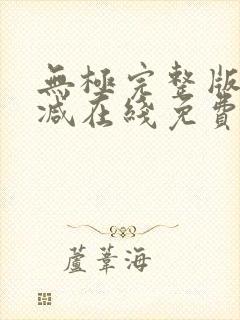 無極完整版
減在綫免費
蘆葦海